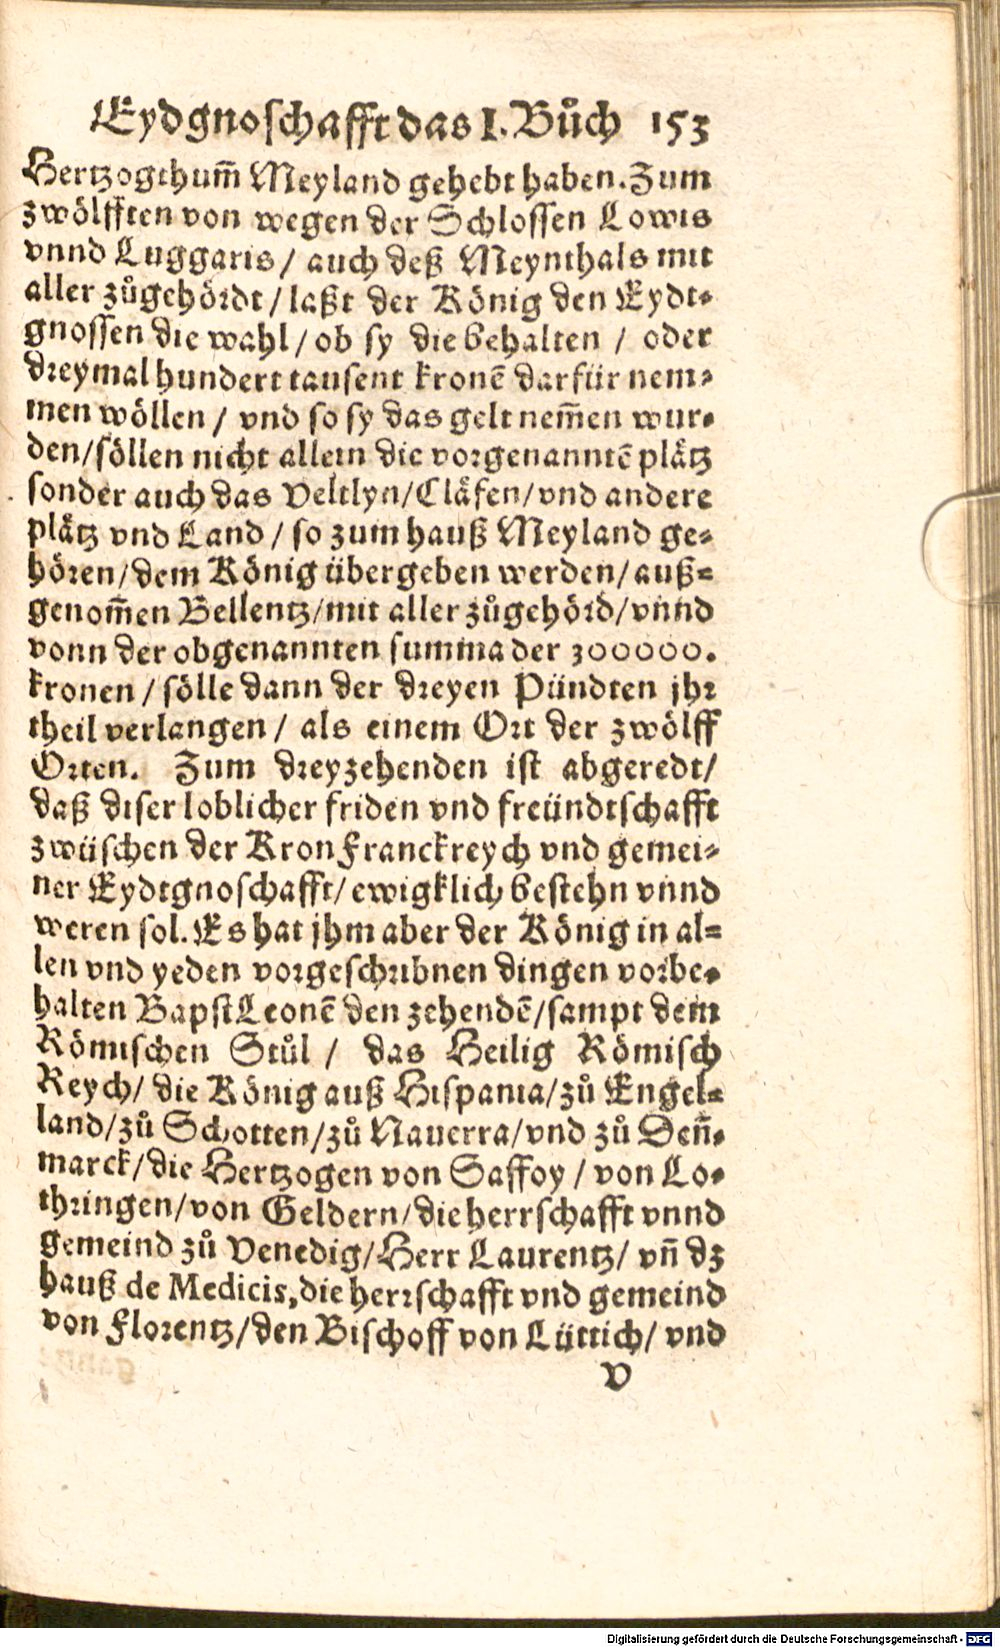 Eydgnoschafft das I. Bůch 153
Hertzogthum̃ Meyland gehebt haben. Zum
zwölfften von wegen der Schlossen Lowis
vnnd Luggaris / auch deß Meynthals mit
aller zůgehördt / laßt der König den Eydt-
gnossen die wahl / ob sy die behalten / oder
dreymal hundert tausent kronẽ darfür nem-
men wöllen / vnd so sy das gelt nem̃en wur-
den / söllen nicht allein die vorgenanntẽ plätz
sonder auch das Veltlyn / Cläfen / vnd andere
plätz vnd Land / so zum hauß Meyland ge-
hören / dem König übergeben werden / auß-
genom̃en Bellentz / mit aller zůgehörd / vnnd
vonn der obgenannten summa der 300000.
kronen / sölle dann der dreyen Pündten jhr
theil verlangen / als einem Ort der zwölff
Orten. Zum dreyzehenden ist abgeredt /
daß diser loblicher friden vnd freündtschafft
zwüschen der Kron Franckreych vnd gemei-
ner Eydtgnoschafft / ewigklich bestehn vnnd
weren sol. Es hat jhm aber der König in al-
len vnd yeden vorgeschribnen dingen vorbe-
halten Bapst Leonẽ den zehendẽ / sampt dem
Römischen Stůl / das Heilig Römisch
Reych / die König auß Hispania / zů Engel-
land / zů Schotten / zů Nauerra / vnd zů Deñ-
marck / die Hertzogen von Saffoy / von Lo-
thringen / von Geldern / die herrschafft vnnd
gemeind zů Venedig / Herr Laurentz / vñ dz
hauß de Medicis, die herrschafft vnd gemeind
von Florentz / den Bischoff von Lüttich / vnd
V
Digitalisierung gefördert durch die Deutsche Forschungsgemeinschaft - DFG